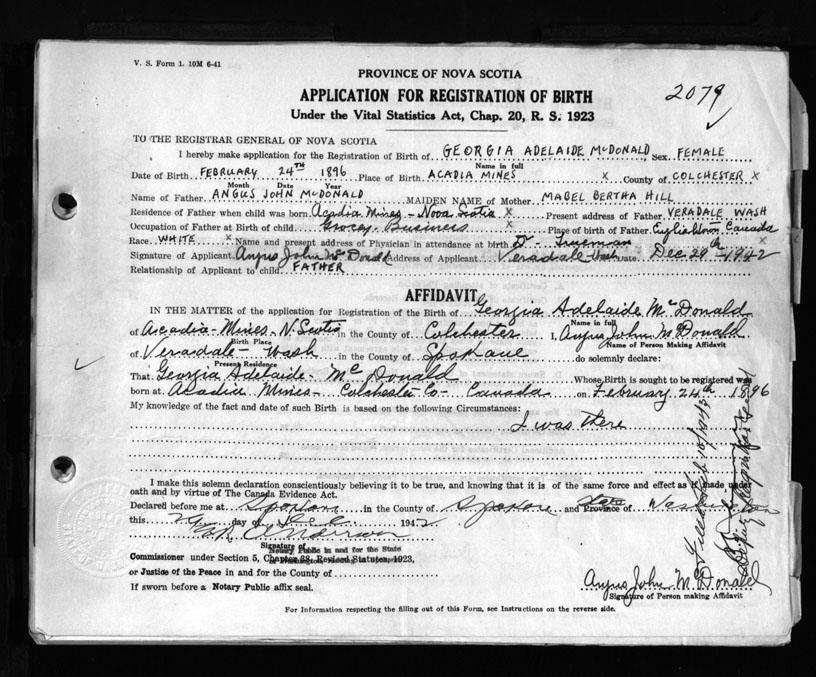 V. S. Form 1. 10M 6-41
PROVINCE OF NOVA SCOTIA
2079
APPLICATION FOR REGISTRATION OF BIRTH
Under the Vital Statistics Act, Chap. 20, R. S. 1923
TO THE REGISTRAR GENERAL OF NOVA SCOTIA
I hereby make application for the Registration of Birth of GEORGIA ADELAIDE McDONALD, Sex FEMALE
Name in full
Date of Birth FEBRUARY 24TH 1896 Place of Birth ACADIA MINES X County of COLCHESTER X
Month Date Year
Name of Father ANGUS JOHN McDONALD MAIDEN NAME of Mother MABEL BERTHA HILL
Residence of Father when child was born Acadia Mines - Nova Scotia X Present address of Father VERADALE WASH
Occupation of Father at Birth of child Grocey Business X Place of birth of Father Canada
Race WHITE X Name and present address of Physician in attendance at birth Dr - Trueman X
Signature of Applicant Angus John McDonald Address of Applicant Veradale Wash Date Dec 29th 1942
Relationship of Applicant to child FATHER
AFFIDAVIT
IN THE MATTER of the application for Registration of the Birth of Georgia Adelaide McDonald
Name in full
of Acadia - Mines - N. Scotia in the County of Colchester I, Angus John McDonald
Birth Place Name of Person Making Affidavit
of Veradale - Wash in the County of Spokane do solemnly declare:
Present Residence
That Georgia Adelaide - McDonald Whose Birth is sought to be registered was
born at Acadia Mines - Colchester Co - Canada on February 24th 1896
My knowledge of the fact and date of such Birth is based on the following Circumstances:
I was there
I make this solemn declaration conscientiously believing it to be true, and knowing that it is of the same force and effect as if made under
oath and by virtue of The Canada Evidence Act.
Declared before me at Spokane in the County of Spokane and State Province of Washington
this 29 day of Dec 1942
Signature of
Notary Public in and for the State
Commissioner under Section 5, Chapter 38, Revised Statutes, 1923,
or Justice of the Peace in and for the County of
If sworn before a Notary Public affix seal.
Angus John McDonald
Signature of Person making Affidavit
For Information respecting the filling out of this Form, see Instructions on the reverse side.